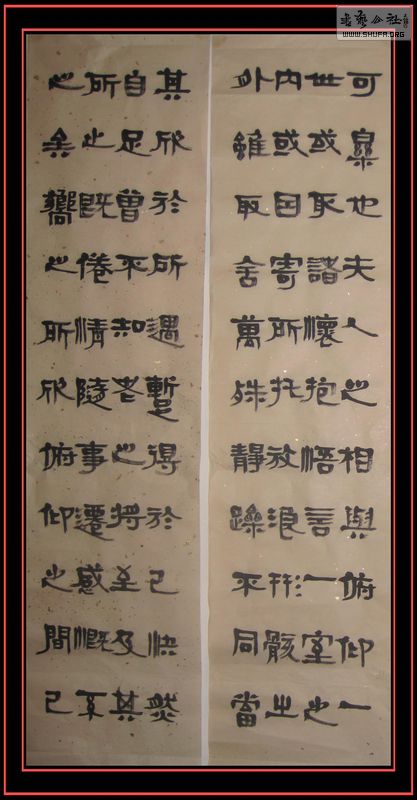 書藝公社
WWW.SHUFA.ORG
可樂也夫人之相與俯仰一
世或取諸懷抱悟言一室之
内或因寄所托放浪形骸之
外雖取舍萬殊靜躁不同當
其欣於所遇暫得於己快然
自足曾不知老之將至及其
所之既倦情隨事遷感慨系
之矣嚮之所欣俯仰之間已